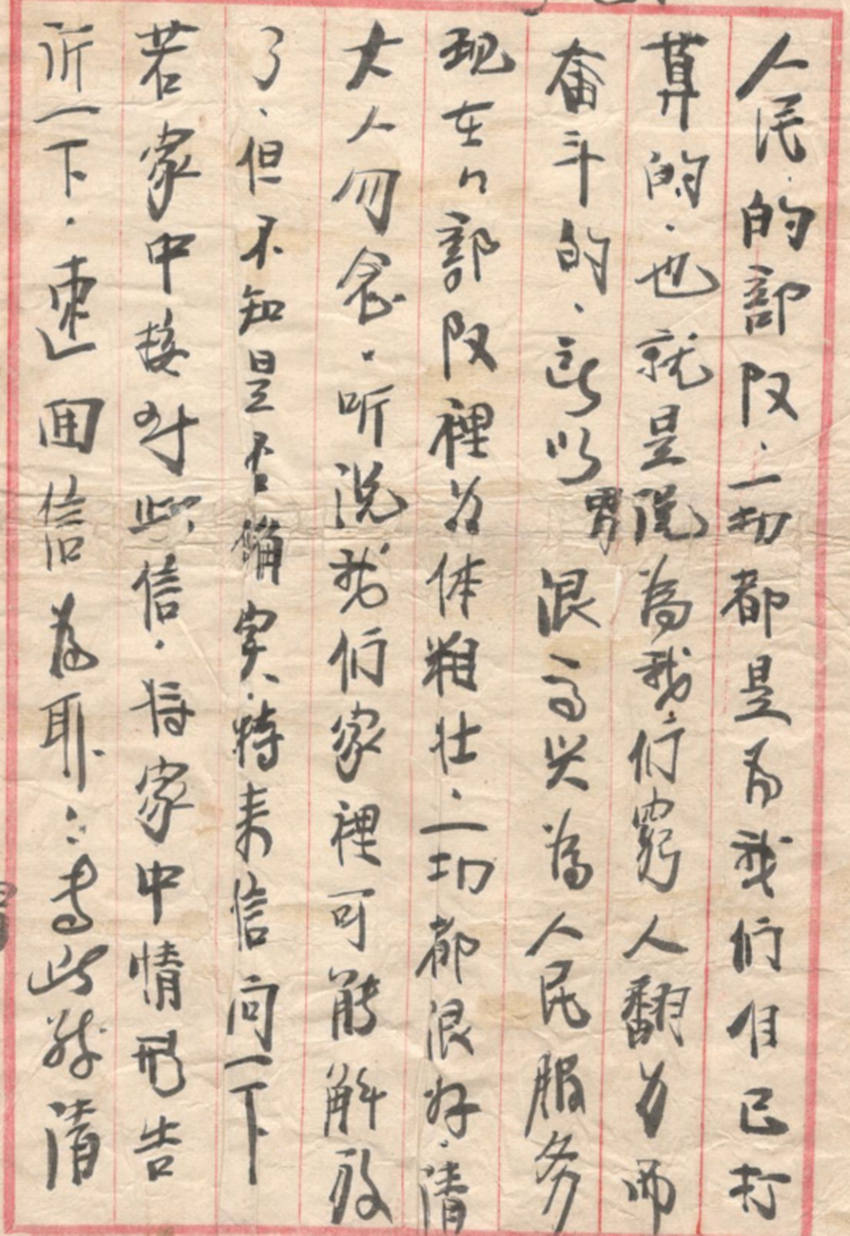 人民的部队．一切都是为我们自己打
算的．也就是说為我们窮人翻身而
奋斗的．所以男很高兴為人民服务
现在部队裡身体粗壮．一切都很好．请
大人勿念．听说我们家裡可能解放
了．但不知是否确实．特来信问一下
若家中接到此信．将家中情形告
诉一下．速回信為耶．：専此就请